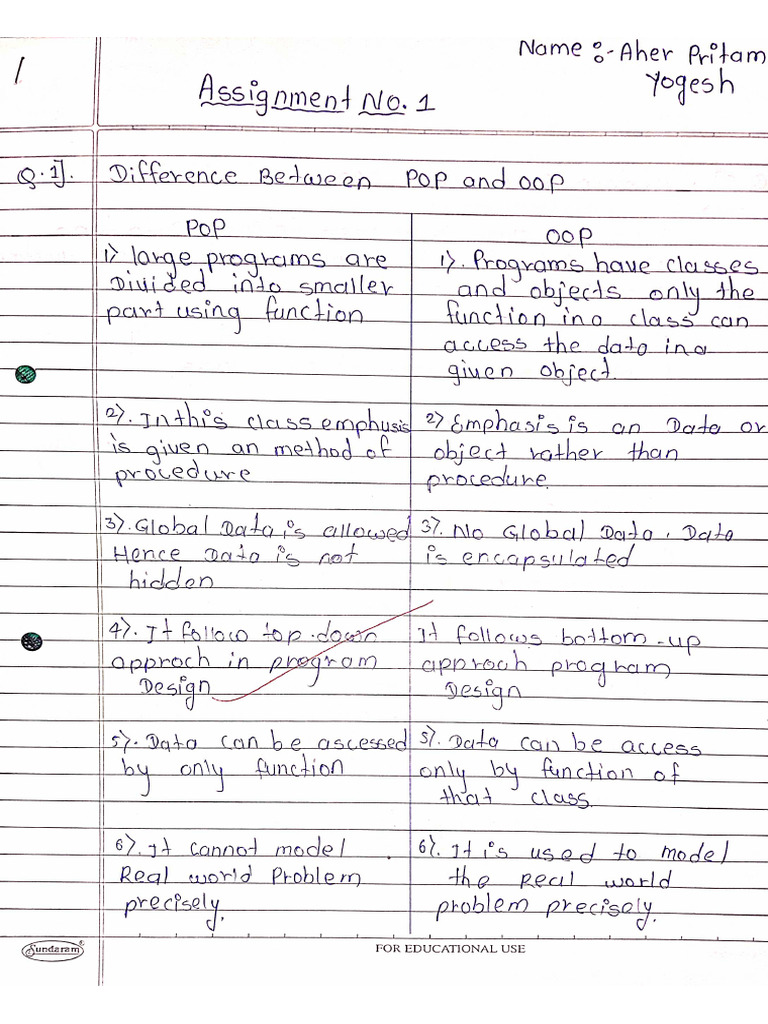 Name :- Aher Pritam
Yogesh
1
Assignment No. 1
Q.1]. Difference Between POP and OOP
POP
1) large programs are
Divided into smaller
part using function
2). In this class emphusis
is given an method of
procedure
3). Global Data is allowed
Hence Data is not
hidden
4). It follow top-down
approch in program
Design
5). Data can be ascessed
by only function
6). It cannot model
Real world Problem
precisely.
OOP
1). Programs have classes
and objects only the
function in a class can
access the data in a
given object.
2) Emphasis is an Data or
object rather than
procedure.
3). No Global Data. Data
is encapsulated
It follows bottom-up
approch program
Design
5). Data can be access
only by function of
that class.
6). It is used to model
the Real world
problem precisely.
Sundaram
FOR EDUCATIONAL USE